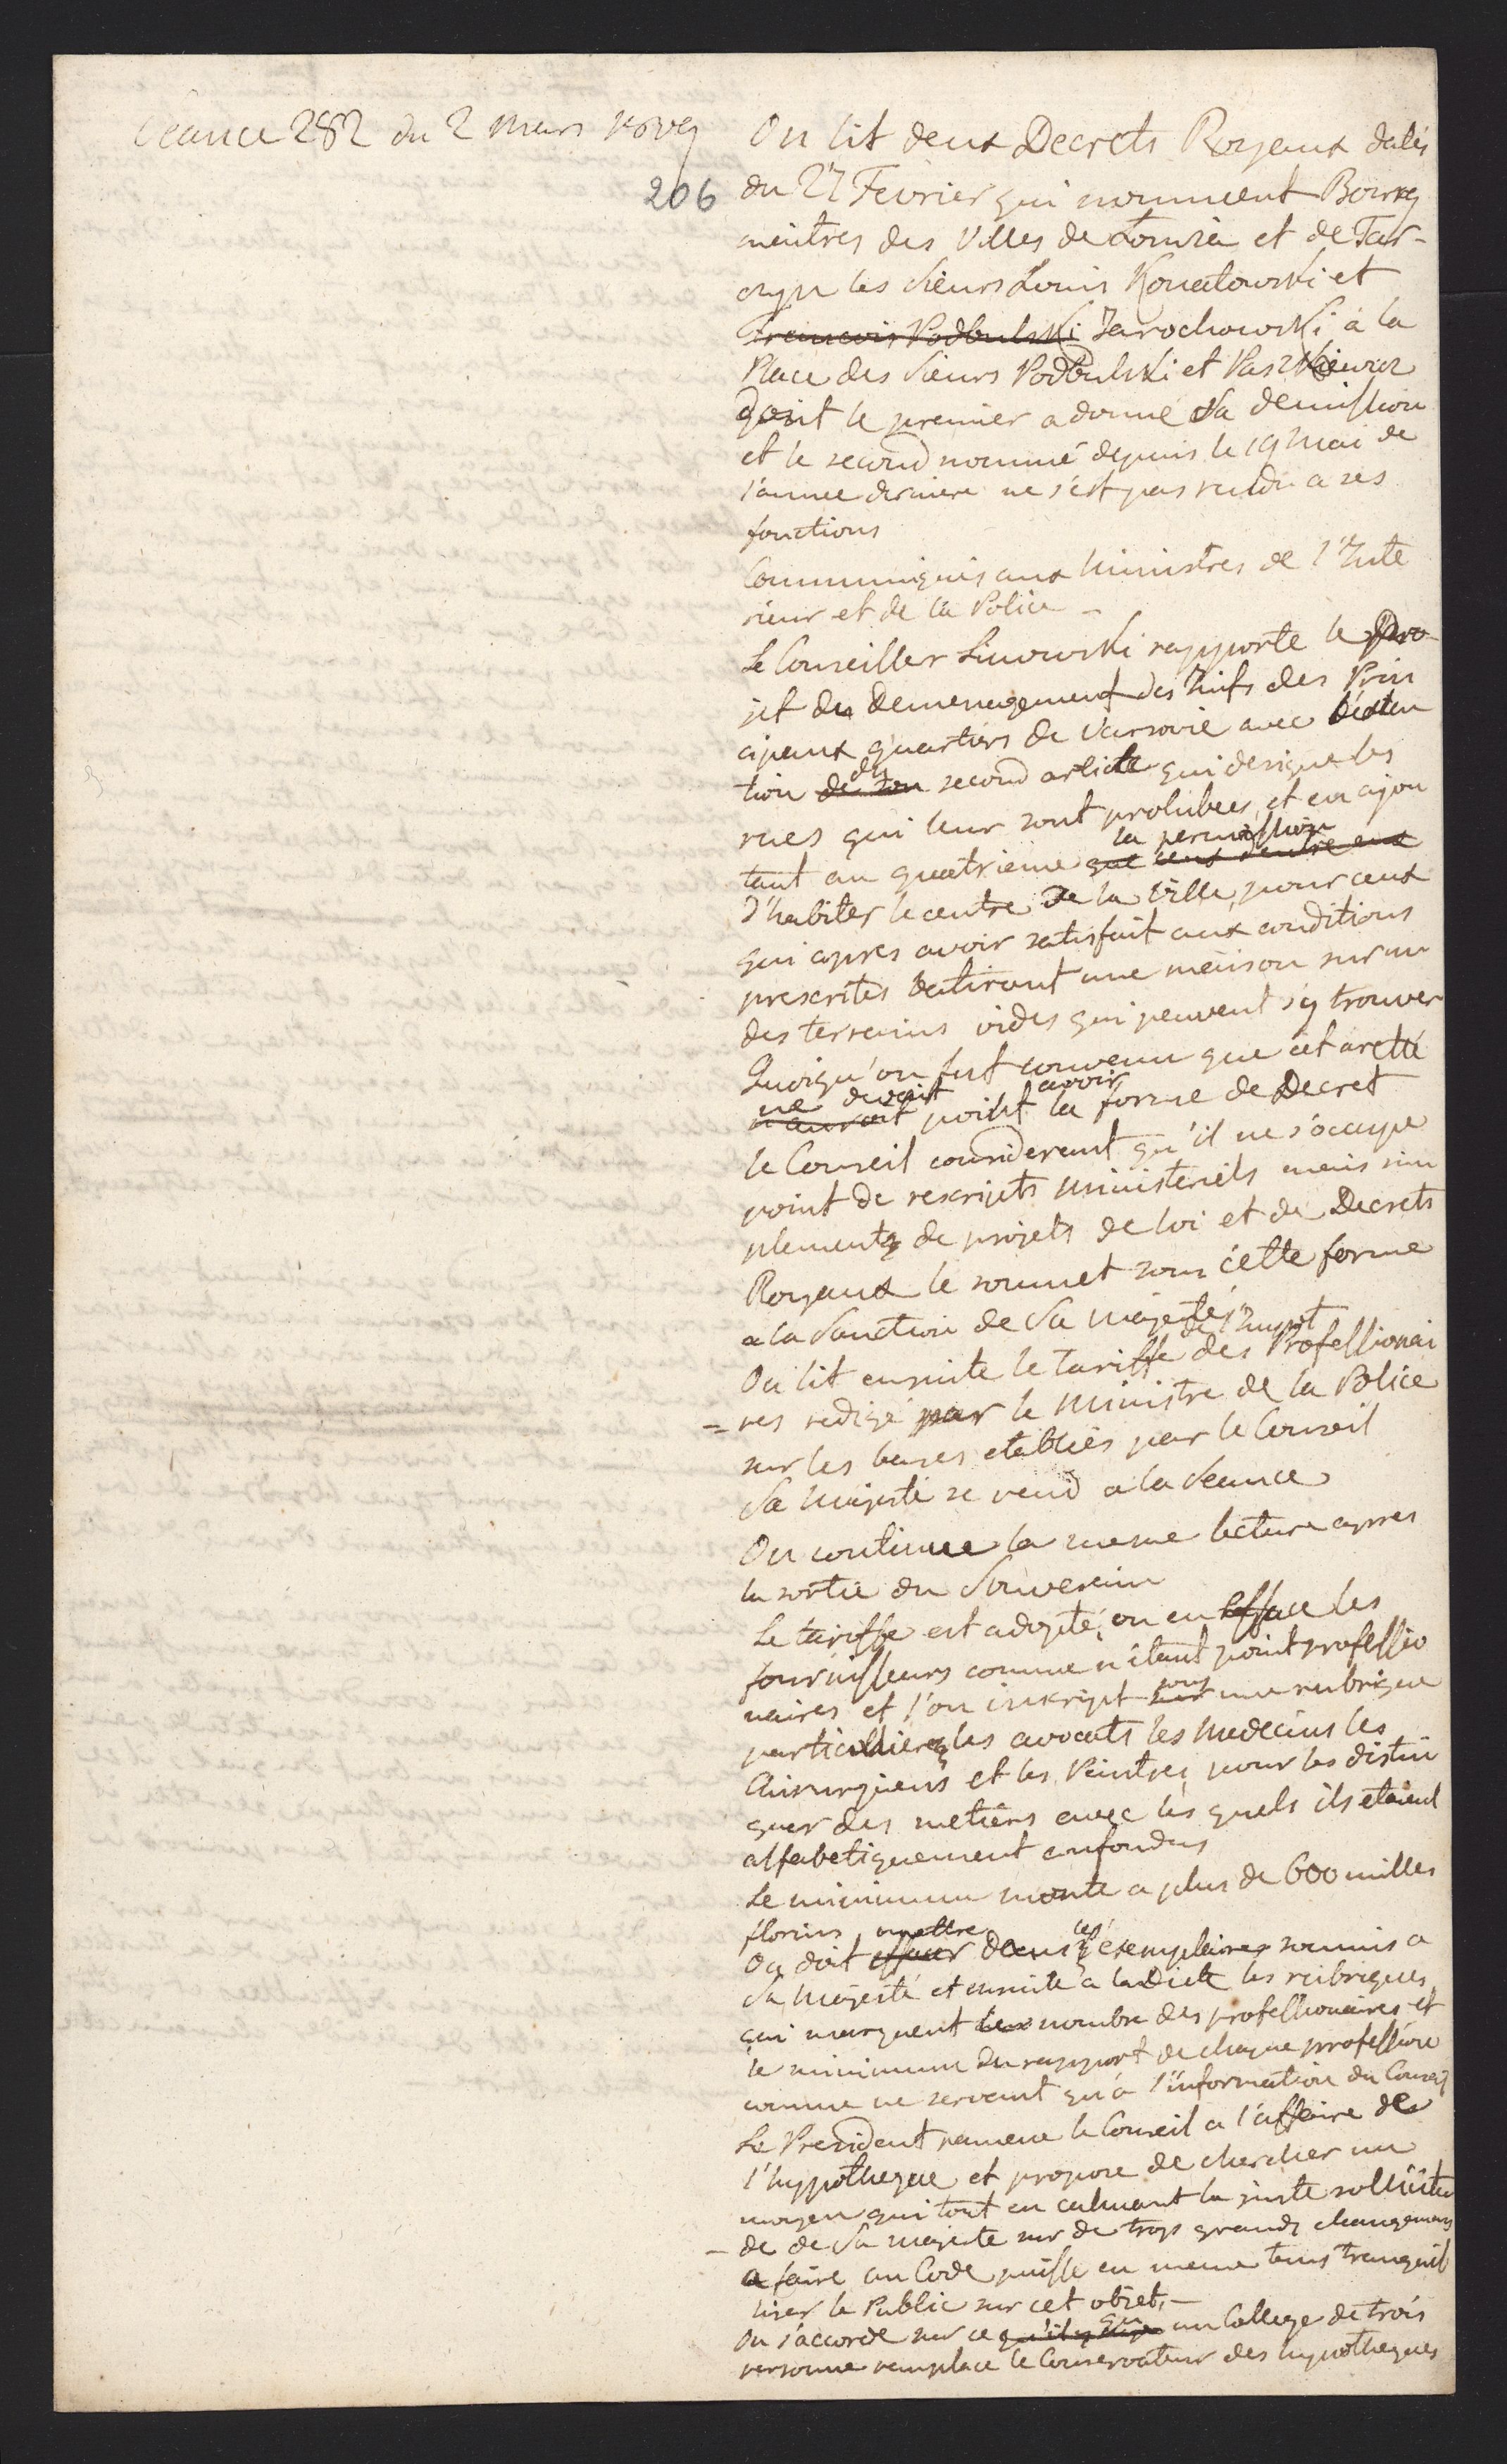 Seance 282 du 2 Mars 1809
206
On lit deux Decrets Royaux datés
du 27 Fevrier qui nomment Bourg
meistres des Villes de Łomża et de Tar-
czyn les Sieurs Louis Konatowski et
Francois Podbulski Jarochowski à la
Place des Sieurs Podbulski et Paszkiewicz
dont le premier a donné Sa demission
et le second nommé depuis le 19 Mai de
l'annee derniere ne s'est pas rendu a ses
fonctions
Communiqués aux Ministres de l'Inte
rieur et de la Police -
Le Conseiller Linowski rapporte le Pro-
jet du Demenagement des Juifs des Prin
cipaux quartiers de Varsovie avec
tion de son du second article qui designe les
rues qui leur sont prohibees, et en ajou
tant au quatrieme que ceux d'entre eux la permission
d'habiter le centre de la Ville, pour ceux
qui apres avoir satisfait aux conditions
prescrites batiront une maison sur un
des terrains vides qui peuvent s'y trouver
Quoiqu'on fut convenu que cet arcté
n'auroit ne devoit point avoir la forme de Decret
le Conseil considerant qu'il ne s'occupe
point de rescripts ministeriels mais sim
plement de projets de loi et de Decrets
Royaux le soumet sous cette forme
a la Sanction de Sa Majesté
On lit ensuite le Tariffe de l'Impot des Professionai
= res redigé par le Ministre de la Police
sur les bases etablies par le Conseil
Sa Majesté se rend a la Seance
On continue la meme lecture apres
la sortie du Souverain
Le tariffe est adopté, on en efface les
fournisseurs comme n'étant point professio
naires et l'on inscript sur sous une rubrique
particuliere les avocats les Medecins les
Chirurgiens et les Peintres pour les distin
guer des metiers avec les quels ils etaient
alfabetiquement confondus
Le minimum monte a plus de 600 milles
florins
On doit effacer mettre dans les exemplaires soumis a
Sa Majesté et ensuite a la Diete les rubriques
qui marquent le nombre des professionaires et
le minimum du rapport de chaque profession
comme ne servant qu'à l'information du Conseil
Le President ramene le Conseil a l'affaire de
l'hypotheque et propose de chercher un
moyen qui tout en calmant la juste sollicitu
- de de Sa Majeste sur de trop grands changemens
a faire au Code puisse en meme tems tranquil
liser le Public sur cet objet, -
On s'accorde sur ce qu'il y aye qu' un College de trois
personne remplace le Conservateur des hypotheques